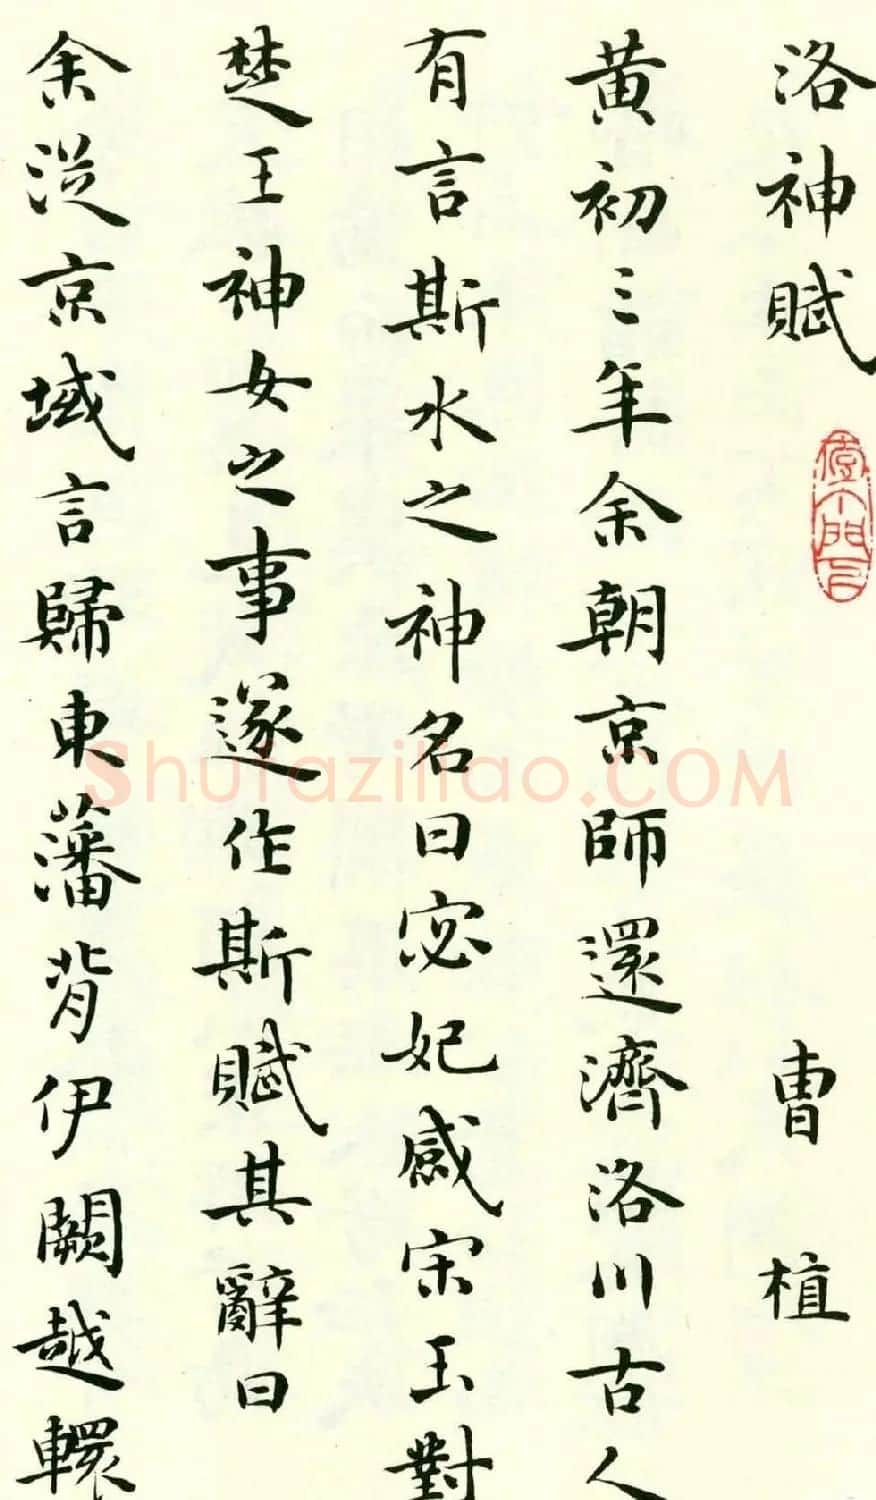 洛神賦 曹植
黄初三年余朝京師還濟洛川古人
有言斯水之神名曰宓妃感宋玉對
楚王神女之事遂作斯賦其辭曰
余從京域言歸東藩背伊闕越轘
Shufaziliao.COM